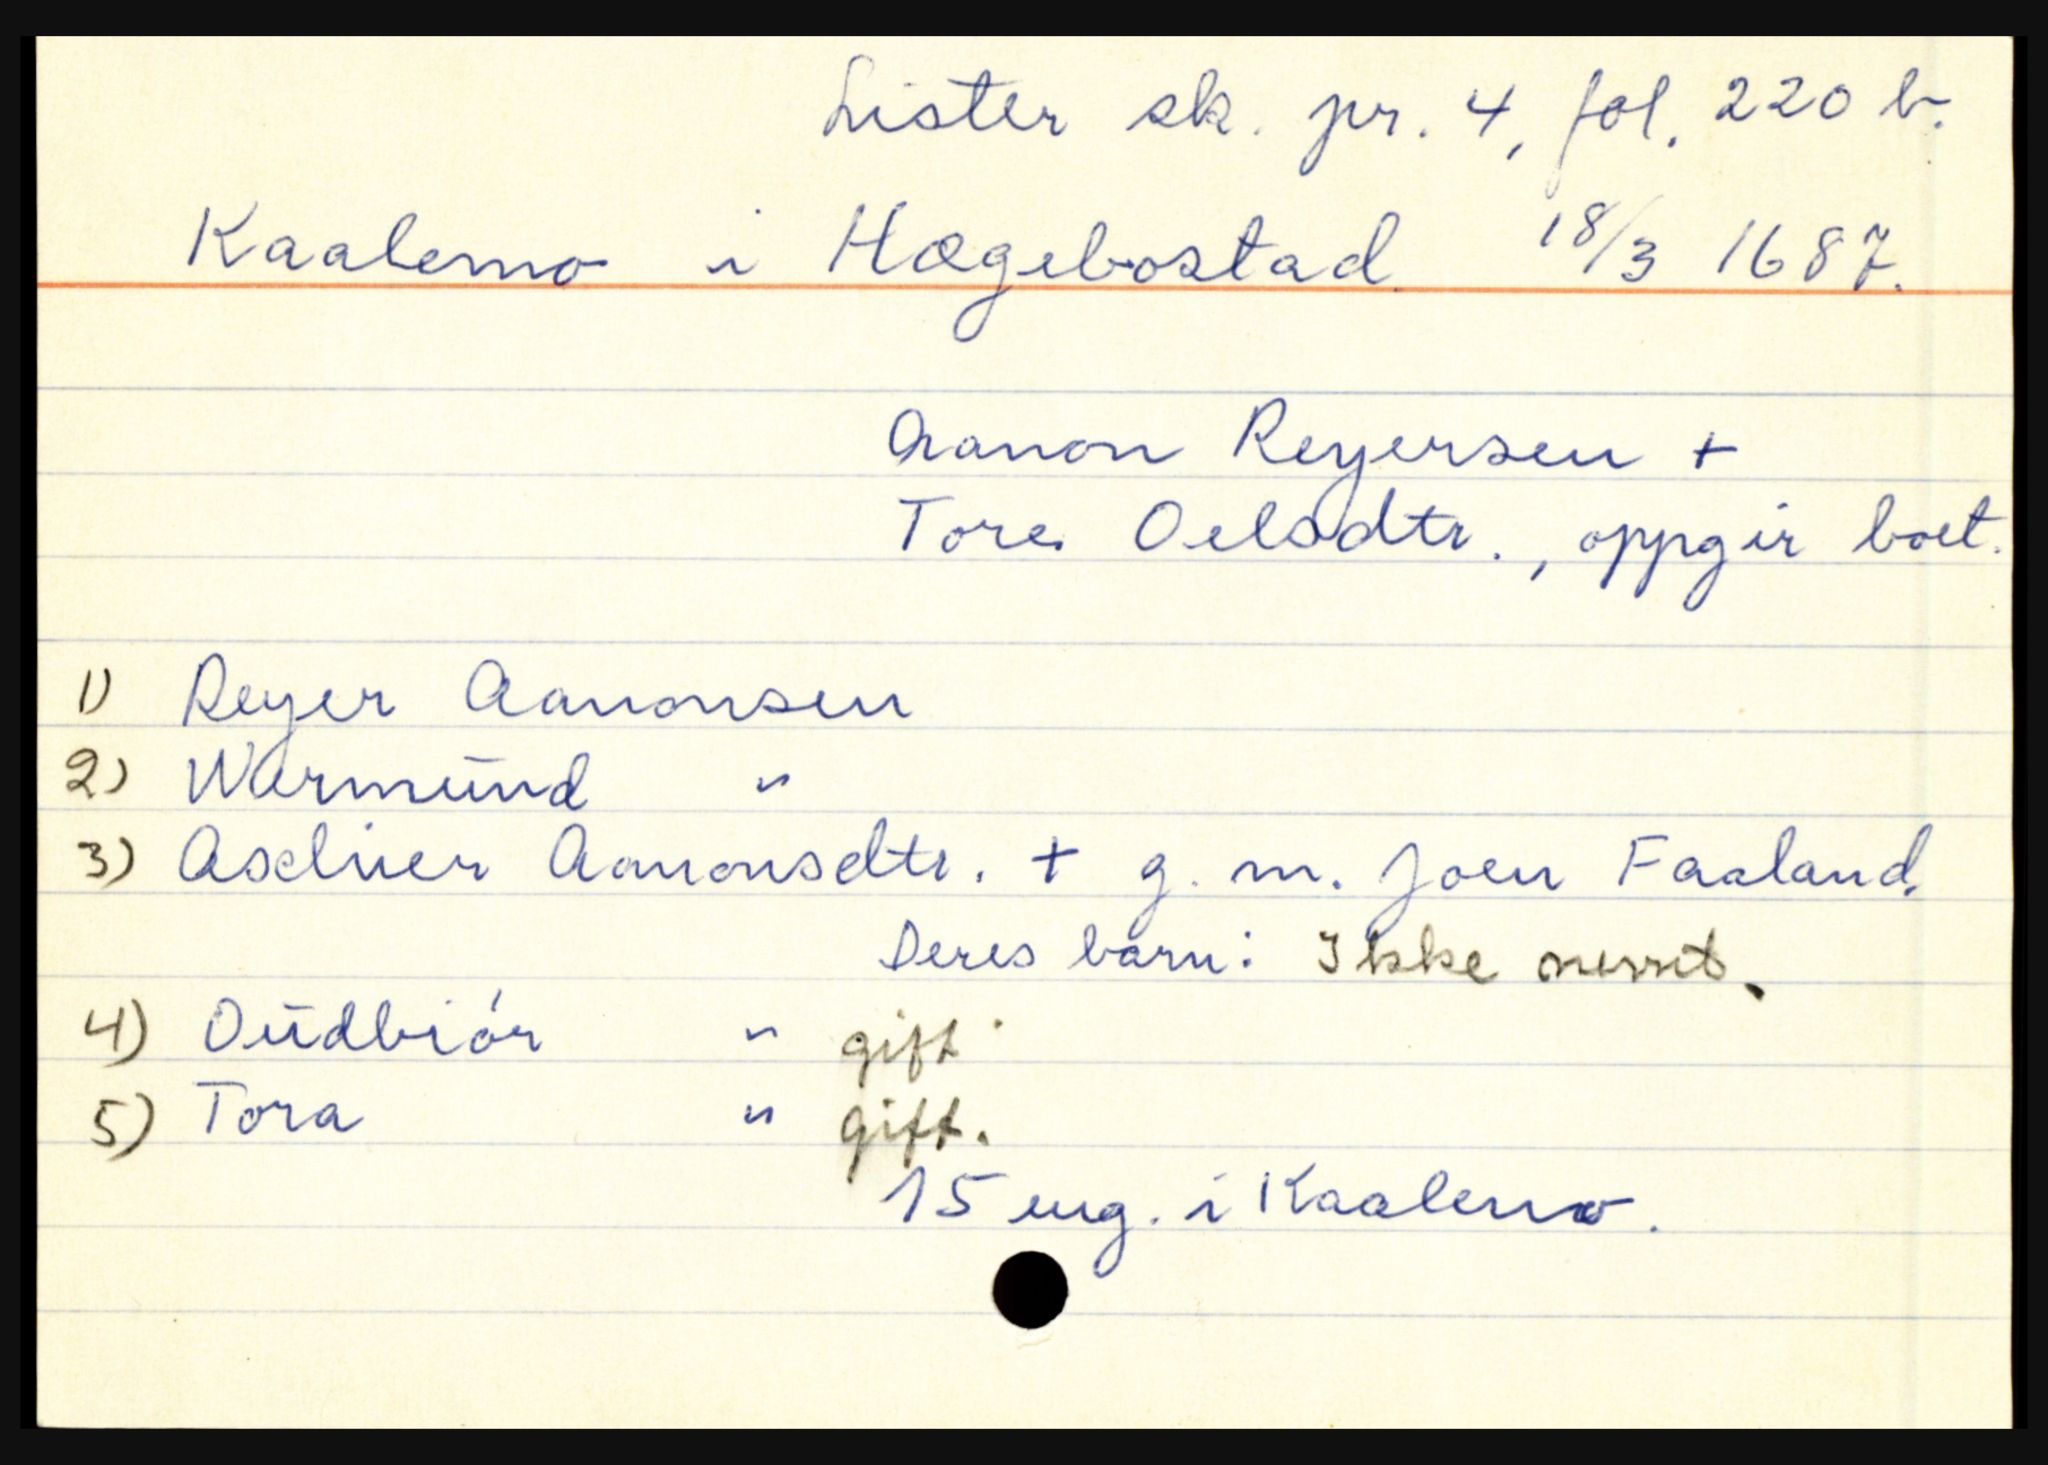 Lister sk. pr. 4, fol. 220 b.
Kaalemo i Hægebostad 18/3 1687.
Aanon Reyersen +
Tore Oelsdtr., oppgir boet.
1) Reyer Aanonsen
2) Warmünd "
3) Aanonsdtr. + g. m. Joen Faaland.
Deres barn: Ikke nevnt.
4) Oüdbiór " gift.
5) Tora " gift.
15 eng. i Kaalemo.